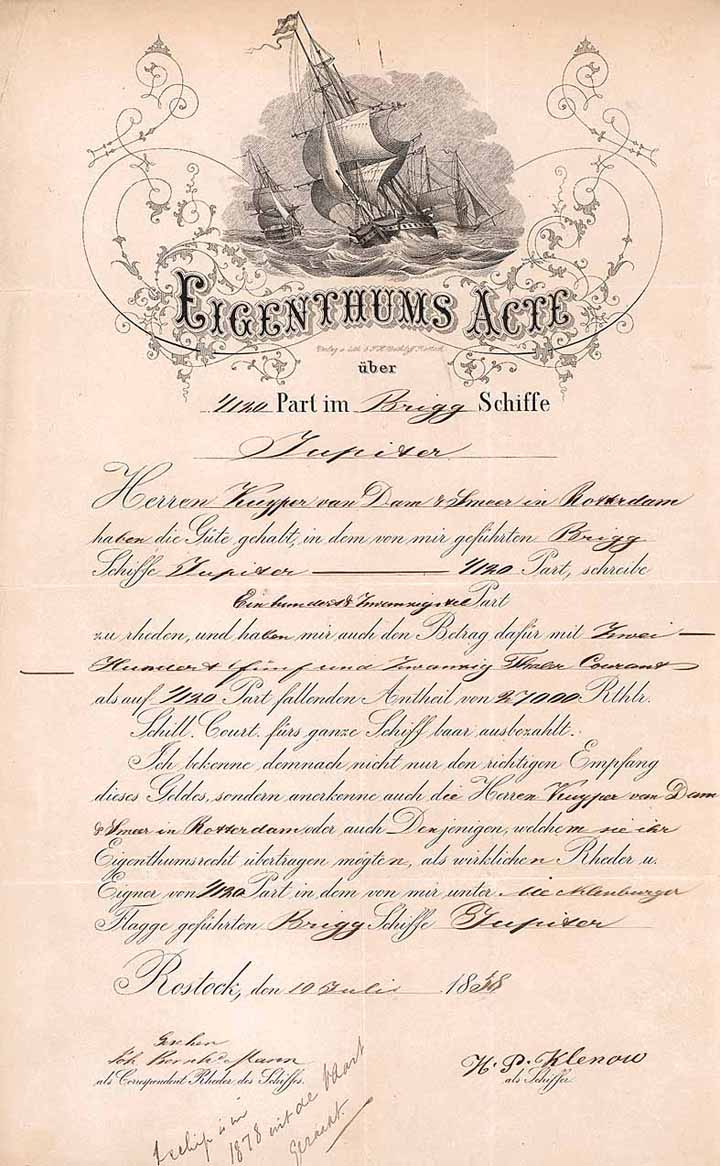 EIGENTHUMS ACTE
über
1/120 Part im Brigg Schiffe
Jupiter
Herren Kuyper van Dam & Smeer in Rotterdam
haben die Güte gehabt, in dem von mir geführten Brigg
Schiffe Jupiter 1/120 Part, schreibe
Ein hundert & Zwanzigstel Part
zu rheden, und haben mir auch den Betrag dafür mit Zwei
Hundert fünf und Zwanzig Thaler Courant
als auf 1/120 Part fallenden Antheil von 27000 Rthlr.
Schill. Court. fürs ganze Schiff baar ausbezahlt.
Ich bekenne demnach nicht nur den richtigen Empfang
dieses Geldes, sondern anerkenne auch die Herren Kuyper van Dam
& Smeer in Rotterdam oder auch Denjenigen, welchem sie ihr
Eigenthumsrecht übertragen mögten, als wirklichen Rheder u.
Eigner von 1/120 Part in dem von mir unter Mecklenburger
Flagge geführten Brigg Schiffe Jupiter
Rostock, den 10 Julii 1858
Gesehen
Joh. Bernh. Mann
als Correspondent Rheder des Schiffes.
H. P. Klenow
als Schiffer
schip is in
1878 uit de vaart
geraakt.